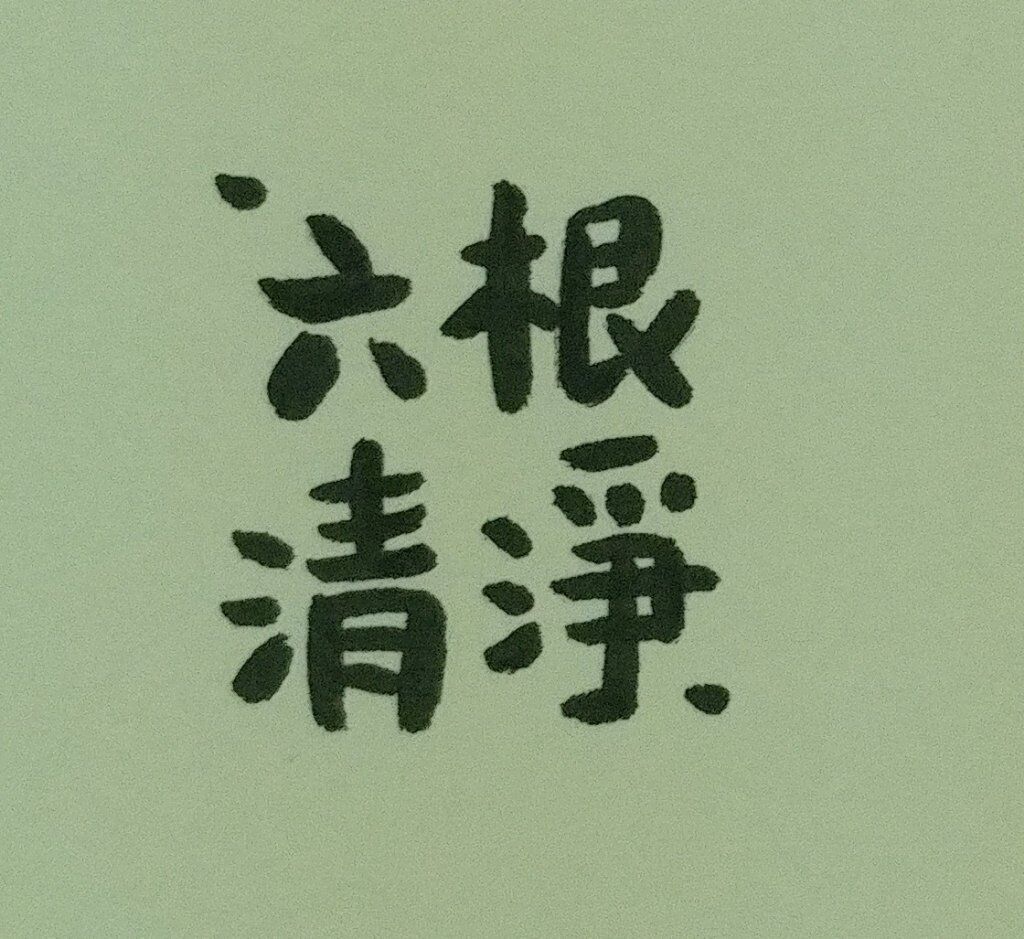 六根
清淨